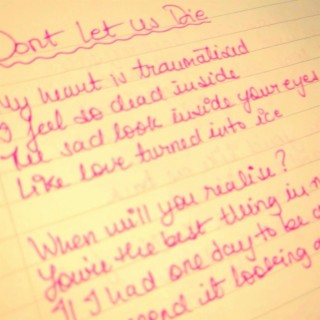 Dont Let us Die
My heart is traumatised
I feel so dead inside
The sad look inside your eyes
Like love turned into ice
When will you realise?
You're the best thing in
If I had one day to be
spend it looking